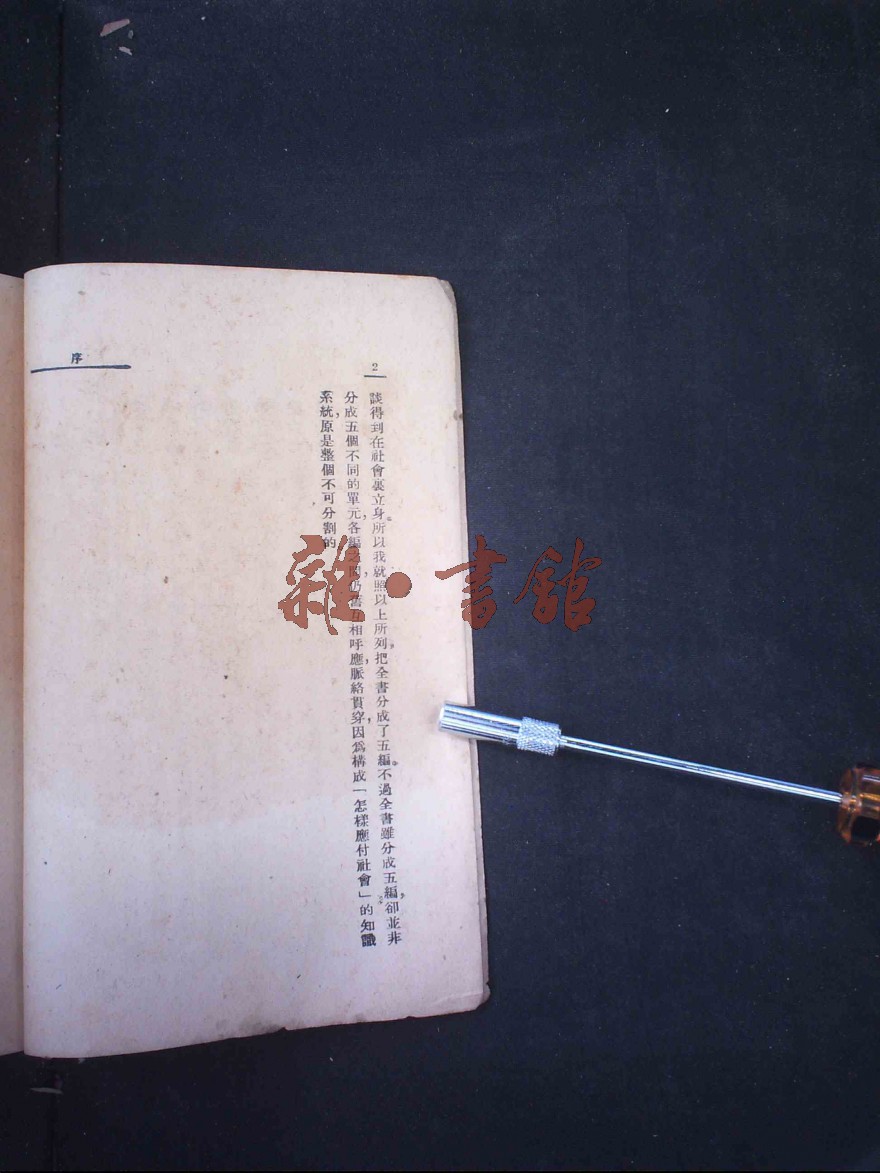 序
2
談得到在社會裏立身。所以我就照以上所列，把全書分成了五編。不過全書雖分成五編，卻並非
分成五個不同的單元，各編之間，仍舊互相呼應，脈絡貫穿，因爲構成「怎樣應付社會」的知識
系統，原是整個不可分割的
雜·書館